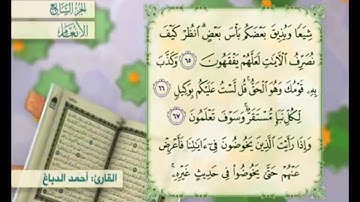 الجزء السابع
الأنعام
شِيَعًا وَيُذِيقَ بَعْضَكُم بَأْسَ بَعْضٍ ۗ ٱنظُرْ كَيْفَ
نُصَرِّفُ ٱلْءَايَٰتِ لَعَلَّهُمْ يَفْقَهُونَ ٦٥ وَكَذَّبَ
بِهِۦ قَوْمُكَ وَهُوَ ٱلْحَقُّ ۚ قُل لَّسْتُ عَلَيْكُم بِوَكِيلٍ ٦٦
لِّكُلِّ نَبَإٍ مُّسْتَقَرٌّ ۚ وَسَوْفَ تَعْلَمُونَ ٦٧
وَإِذَا رَأَيْتَ ٱلَّذِينَ يَخُوضُونَ فِىٓ ءَايَٰتِنَا فَأَعْرِضْ
عَنْهُمْ حَتَّىٰ يَخُوضُوا۟ فِى حَدِيثٍ غَيْرِهِۦ ۚ
القارئ: أحمد الدباغ